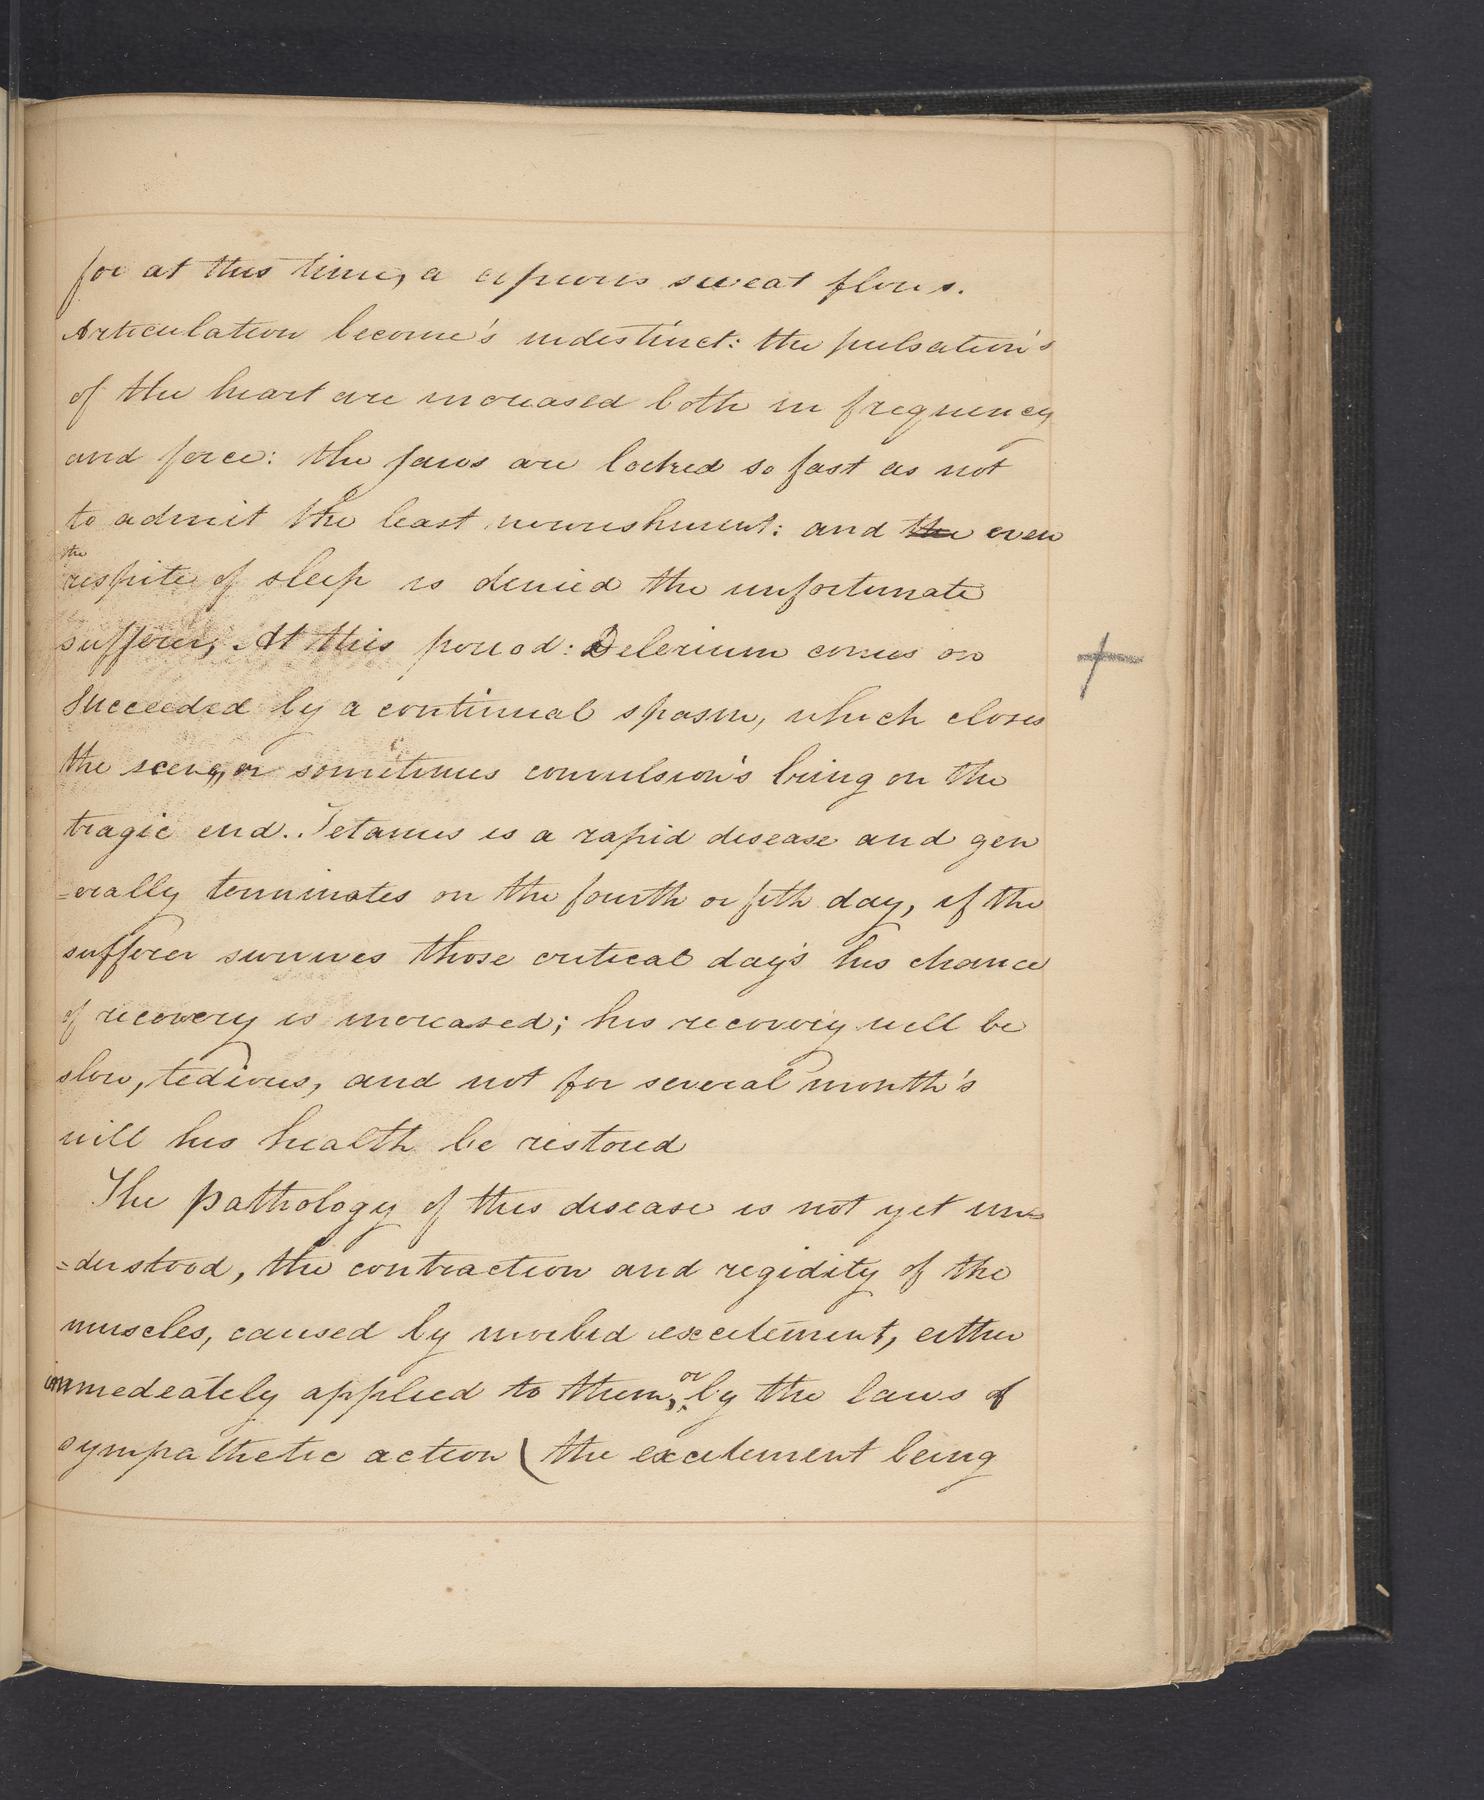 for at this time, a copious sweat flows.
Articulation become's indistinct: the pulsation's
of the heart are increased both in frequency
and force: the jaws are locked so fast as not
to admit the least nourishment: and the even
the
respite of sleep is denied the unfortunate
sufferer, At this period: Delerium comes on
succeeded by a continual spasm, which closes
the scene, or sometimes convulsion's bring on the
tragic end. Tetanus is a rapid disease and gen
=erally terminates on the fourth or fith day, if the
sufferer survives those critical day's his chance
of recovery is increased; his recovery will be
slow, tedious, and not for several month's
will his health be restored
The pathology of this disease is not yet un=
=derstood, the contraction and regidity of the
muscles, caused by morbid excitement, either
immedeately applied to them, or by the laws of
sympathetic action (the excitement being